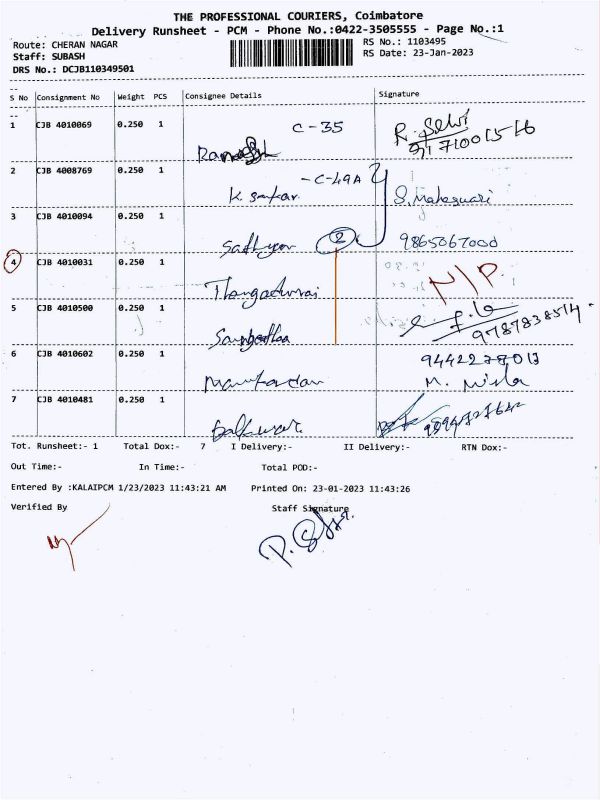 THE PROFESSIONAL COURIERS, Coimbatore
Delivery Runsheet - PCM - Phone No.:0422-3505555 - Page No.:1
Route: CHERAN NAGAR
RS No.: 1103495
Staff: SUBASH
RS Date: 23-Jan-2023
DRS No.: DCJB110349501
S No Consignment No Weight PCS Consignee Details Signature
1 CJB 4010069 0.250 1 C-35 R. Selvi
2 CJB 4008769 0.250 1 -C-49A
K. S. Maheswari
3 CJB 4010094 0.250 1
Sathya 2 9865067000
4 CJB 4010031 0.250 1 N/P
Thangadurai
5 CJB 4010500 0.250 1
Sangeetha 9787838514
6 CJB 4010602 0.250 1
M.
7 CJB 4010481 0.250 1
Tot. Runsheet:- 1 Total Dox:- 7 I Delivery:- II Delivery:- RTN Dox:-
Out Time:- In Time:- Total POD:-
Entered By :KALAIPCM 1/23/2023 11:43:21 AM Printed On: 23-01-2023 11:43:26
Verified By Staff Signature